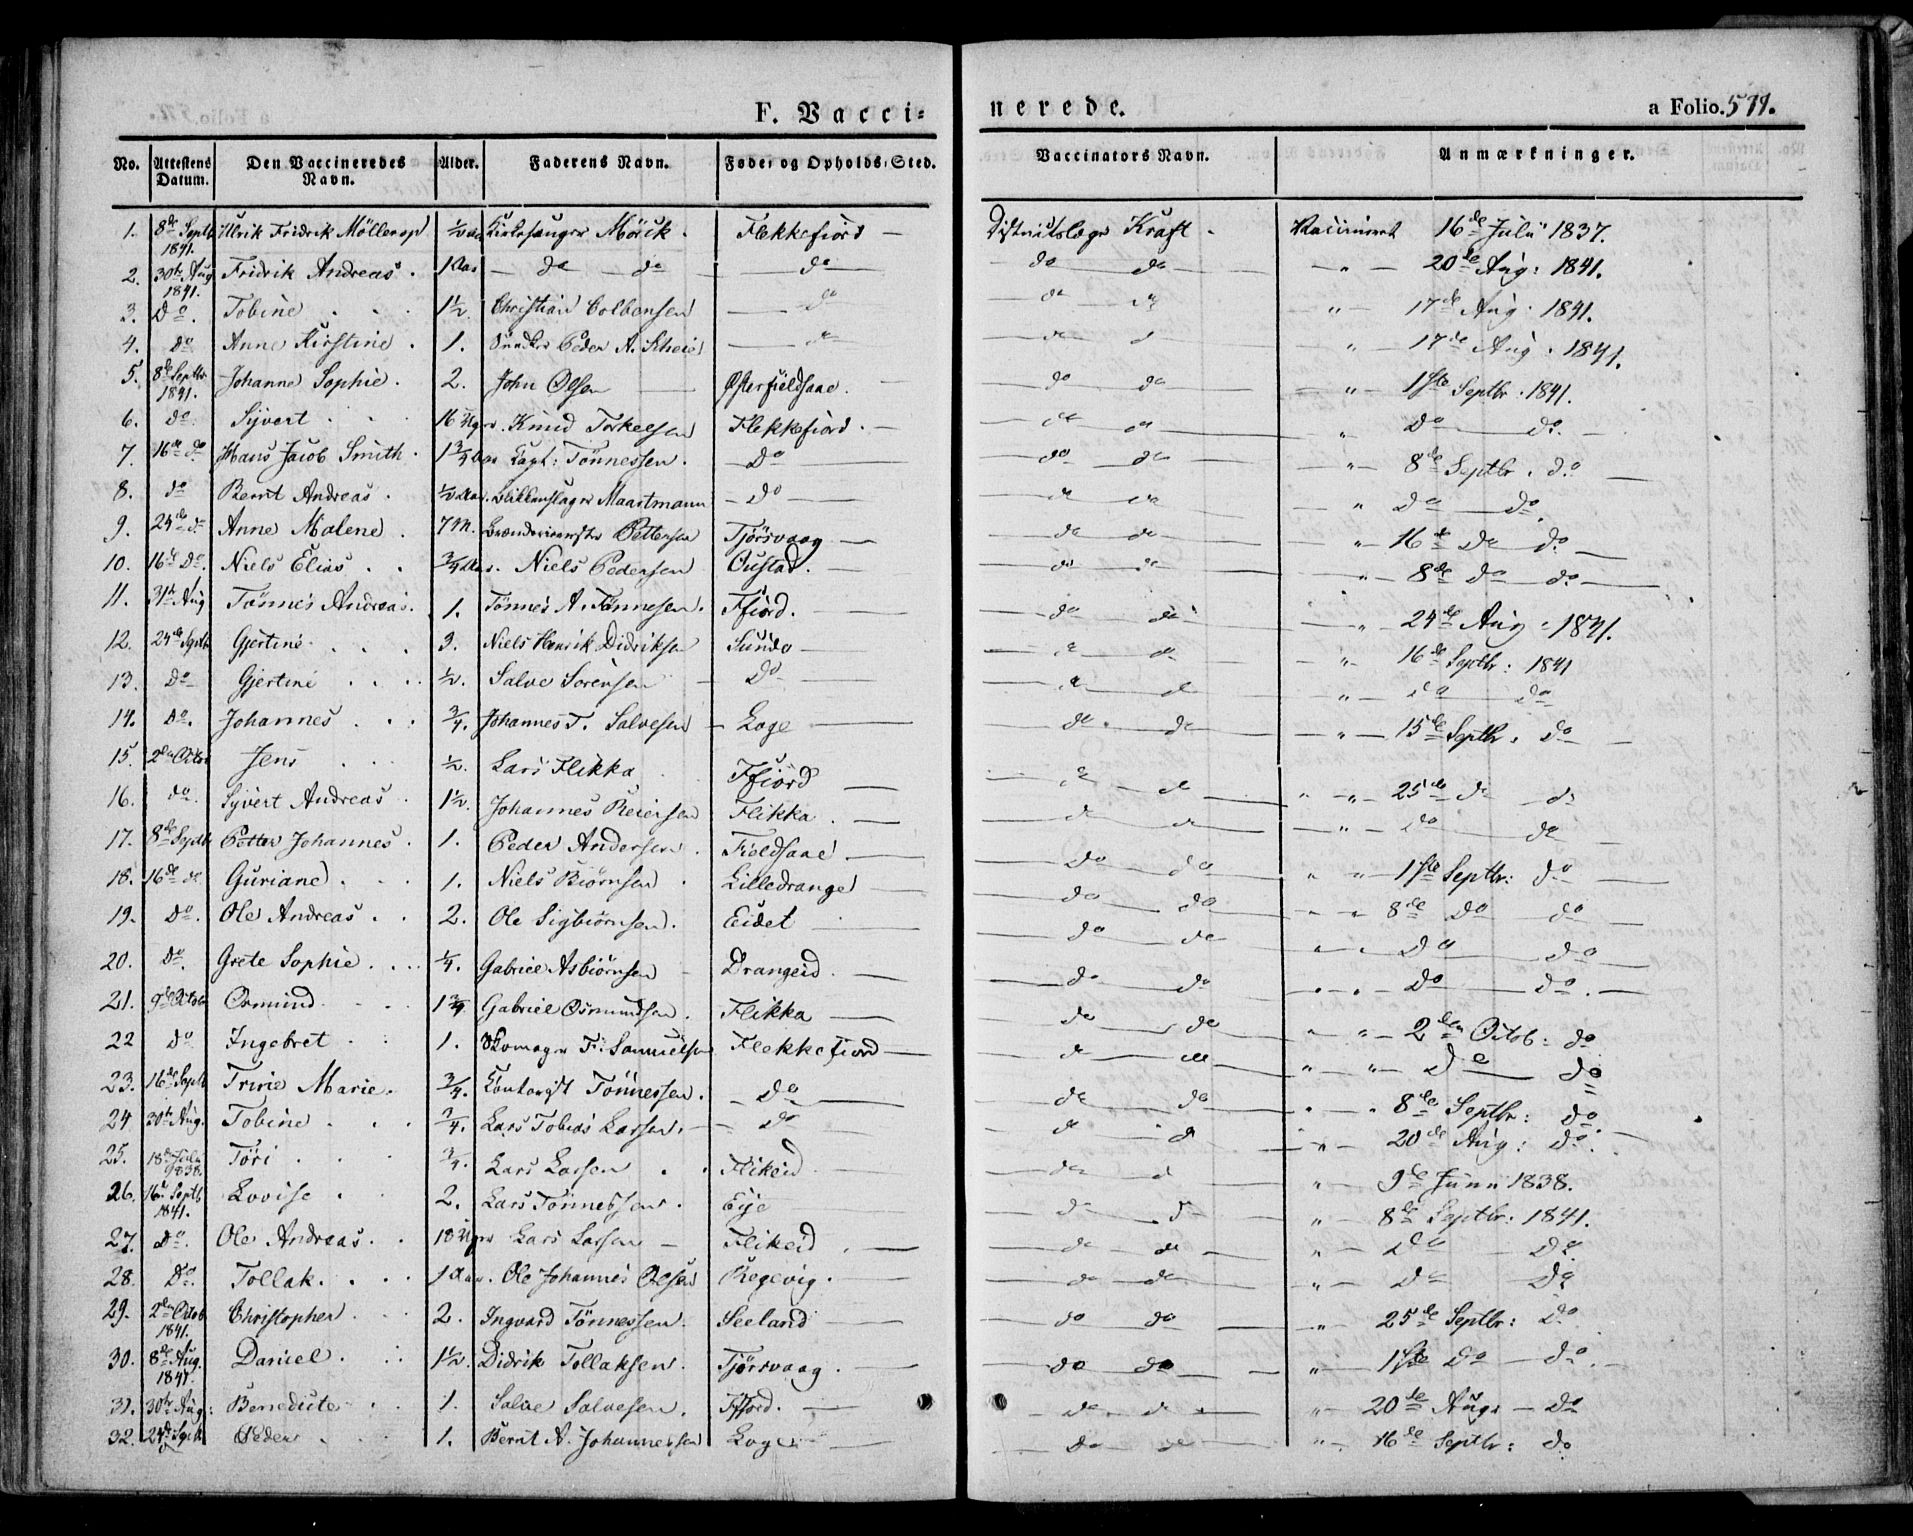 F. Vaccinerede. a Folio. 511.
No. Attestens Datum. Den Vaccineredes Navn. Alder. Faderens Navn. Føde- og Opholds-Sted. Vaccinators Navn. Anmærkninger.
1. 8de Septb 1841. Ulrik Fridrik Möllerop 1/2 Kirkesanger Mörch. Flekkefiord — Districtslæge Kraft. Vaccineret 16de Juli 1837.
2. 30te Aug 1841. Fridrik Andreas. 1 Aar — do — do do do do — " — 20de Aug: 1841.
3. Do. Tobine 1 1/2. Christian Colbensen do do do " — 17de Aug. 1841.
4. do Anne Kirstine. 1. Peder A. Scheie do do d " 17de Aug. 1841.
5. 8de Septbr 1841. Johanne Sophie. 2. John Olsen Østerfieldsaae. do do — " — 1ste Septbr. 1841.
6. do. Syvert 16 Uger. Knud Torkelsen Flekkefiord. do do " Do do.
7. 16de do Hans Jacob Smith. 1 3/4 Aar Capt: Tönnessen. Do do do — " — 8de Septbr. do
8. do Bernt Andreas. 1/2 Aar. Blikkenslager Maartmann — Do do do — " Do do.
9. 24de do Anne Malene. 7 M. Brænderimester Pettersen Tjörsvaag do do " — 16de Do do.
10. 16de Do. Niels Elias 3/4 Aar. Niels Pedersen Oustad. do do " — 8de Do do
11. 31te Aug Tönnes Andreas. 1. Tönnes A. Tönnesen. Ffiord. do do — " 24de Aug: 1841.
12. 24de Septb Gjertine 3. Niels Henrik Didriksen Sunde do do — " — 16de Septbr: 1841
13. Do Gjertine 1/2. Salve Sörensen Do do do " — do do
14. Do. Johannes 3/4. Johannes T. Salvesen Loge do do — " — 15de Septbr. do
15. 2den Octbr Jens 1/2. Lars Flikka Ffiord do do " — " — 25de do do
16. do. Syvert Andreas. 1 1/2. Johannes Reiersen Flikka. do do — " — Do do
17. 8de Septbr Petter Johannes. 1. Peder Andersen Fieldsaae. do do " " — 1ste Septbr: do
18. 16de do Guriane 1. Niels Biörnsen. Lilledrange do do " — " 8de Do do
19. Do. Ole Andreas 2. Ole Sigbiörnsen. Eidet do do " — Do do
20. Do. Grete Sophie 1/4. Gabriel Asbiörnsen Drangeid. do do " — " — Do do.
21. 9de Octobr Osmund 1 3/4 Gabriel Osmundsen. Flikka do do " — " — 2den Octob: do
22 Do Ingebret 1. Skomager F. Samuelsen Flekkefiord do do " — " — Do do
23. 16de Septb Trine Marie. 3/4. Tönnessen. Do do do " — " 8de Septbr: do.
24 30te Aug. Tobine 3/4. Lars Tobias Larsen. Do do d " — 20de Aug: do.
25. 18de Julii 1838. Töri 3/4. Lars Larsen Flikeid do d " 9de Junii 1838.
26. 16de Septb 1841. Lovise 2. Lars Tönnessen. Eie do d " — 8de Septbr: 1841.
27. Do. Ole Andreas 18 Uger Lars Larsen Flikeid. do do — " — Do Do.
28. Do. Tollak. 1 Aar. Ole Johannes Olsen Regevig. do do " — Do Do
29. 2den Octob 1841. Christopher 2. Ingvard Tönnessen. Seeland do do — " — 25de Septbr: Do
30. 8de Aug. 1841. Daniel. 1 1/2. Didrik Tollaksen. Tjörsvaag. do do " — 1ste Do do.
31. 30te Aug: Benedicte 1. Salve Salvesen. Ffiord. do do " — 20de Aug: — do
32. 24de Septb Peder 1. Bernt A. Johannessen Loge do do " — 16de Septbr: do